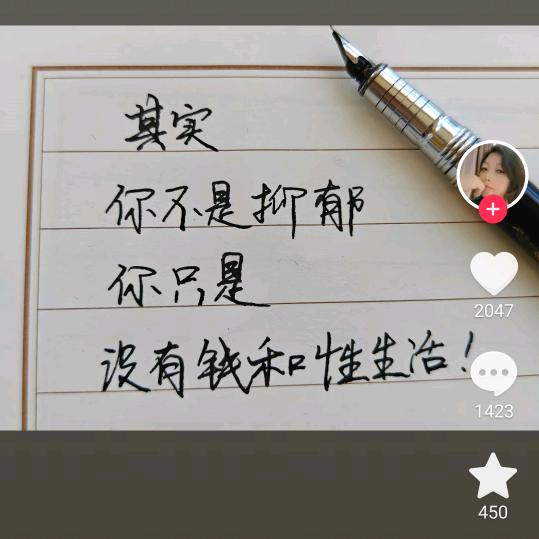 其实
你不是抑郁
你只是
没有钱和性生活！
2047
1423
450